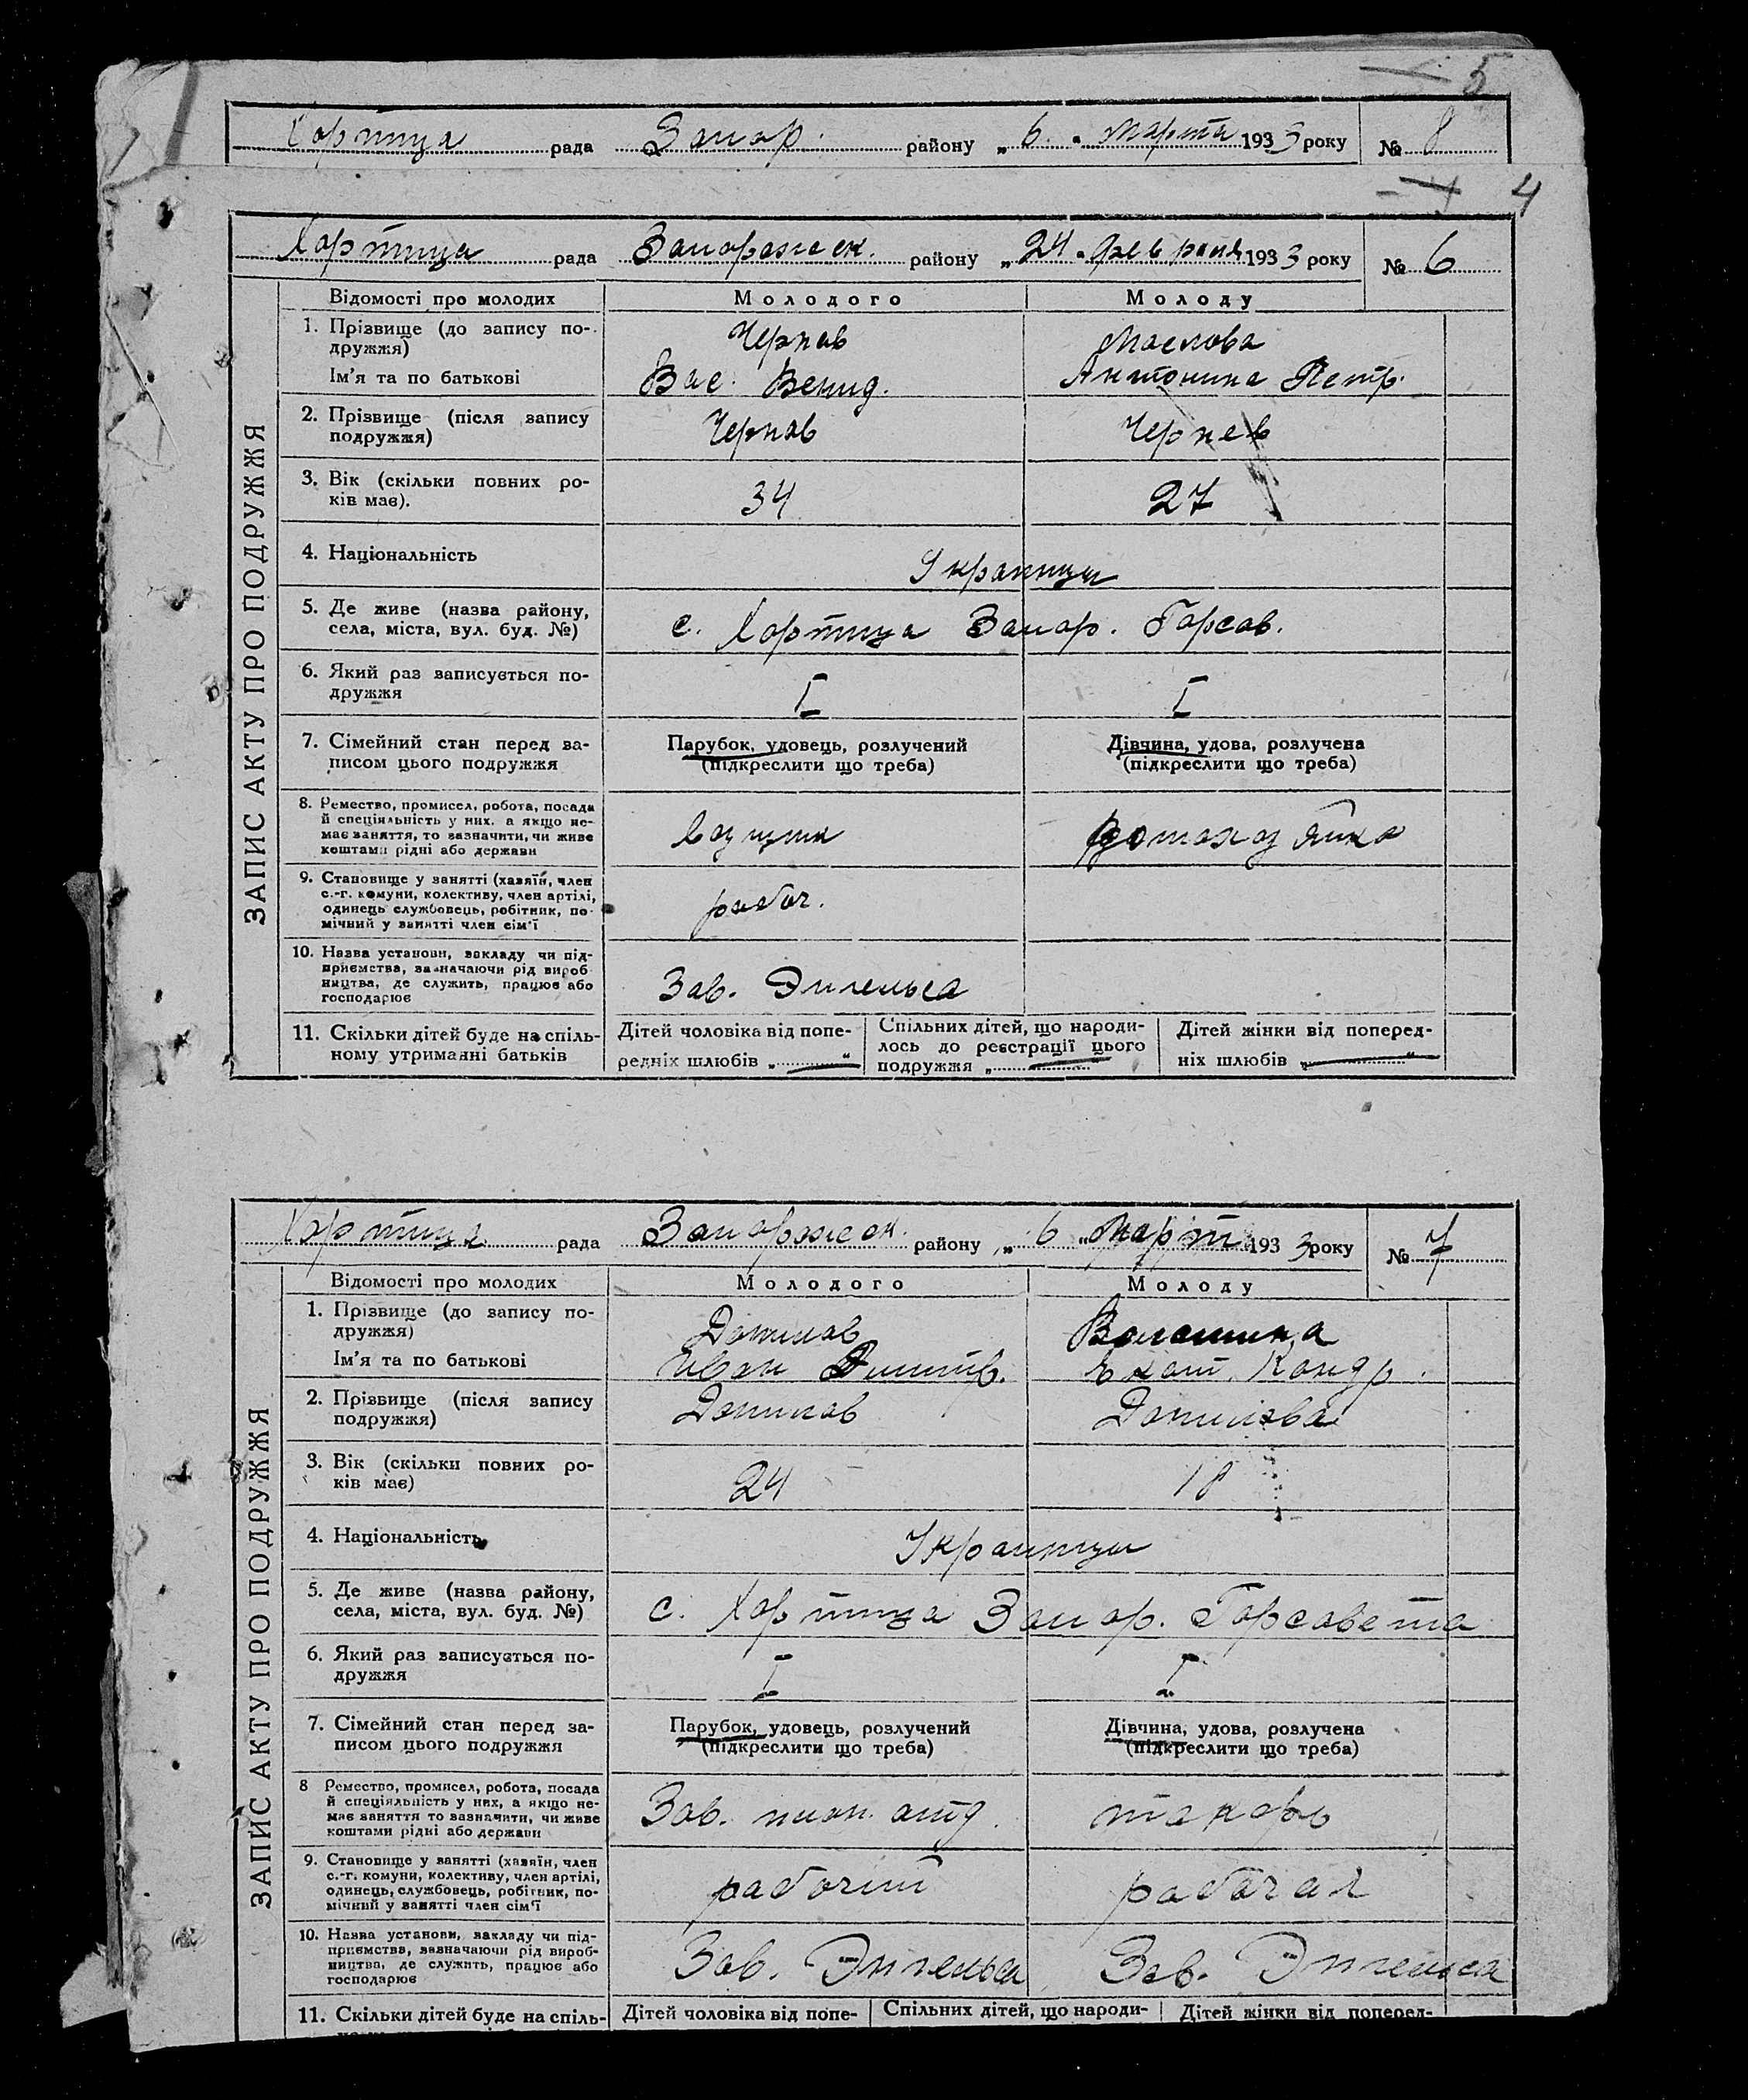 5
Хортица рада Запор. району „6." Марта 1933 року № 8
4
Хортица рада Запорожск. району „24" февраля 1933 року № 6
ЗАПИС АКТУ ПРО ПОДРУЖЖЯ
Відомості про молодих Молодого Молоду
1. Прізвище (до запису по-
дружжя)
Чернов Маслова
Ім'я та по батькові Вас. Венид. Антонина Петр.
2. Прізвище (після запису
подружжя)
Чернов Чернов
3. Вік (скільки повних ро-
ків має).
34 27
4. Національність Украинцы
5. Де живе (назва району,
села, міста, вул. буд. №)
с. Хортица Запор. Горсов.
6. Який раз записується по-
дружжя
I I
7. Сімейний стан перед за-
писом цього подружжя
Парубок, удовець, розлучений Дівчина, удова, розлучена
(підкреслити що треба) (підкреслити що треба)
8. Ремество, промисел, робота, посада
й спеціяльність у них, а якщо не-
має заняття, то зазначити, чи живе
коштами рідні або держави
домохозяйка
9. Становище у занятті (хазяїн, член
с.-г. комуни, колективу, член артілі,
одинець службовець, робітник, по-
мічний у занятті член сім'ї
рабоч.
10. Назва установи, закладу чи під-
приємства, зазначаючи рід вироб-
ництва, де служить, працює або
господарює
Зав. Энгельса
11. Скільки дітей буде на спіль-
ному утриманні батьків
Дітей чоловіка від попе-
редніх шлюбів „ "
Спільних дітей, що народи-
лось до реєстрації цього
подружжя „ "
Дітей жінки від поперед-
ніх шлюбів „ "
Хортица рада Запорожск. району „6" Март 1933 року № 7
ЗАПИС АКТУ ПРО ПОДРУЖЖЯ
Відомості про молодих Молодого Молоду
1. Прізвище (до запису по-
дружжя)
Данилов Волошина
Ім'я та по батькові Иван Дмитр. Екат. Кондр.
2. Прізвище (після запису
подружжя)
Данилов Данилова
3. Вік (скільки повних ро-
ків має)
24 18
4. Національність Украинцы
5. Де живе (назва району,
села, міста, вул. буд. №)
с. Хортица Запор. Горсовета
6. Який раз записується по-
дружжя
I I
7. Сімейний стан перед за-
писом цього подружжя
Парубок, удовець, розлучений Дівчина, удова, розлучена
(підкреслити що треба) (підкреслити що треба)
8 Ремество, промисел, робота, посада
й спеціяльність у них, а якщо не-
має заняття то зазначити, чи живе
коштами рідні або держави
Зав. отд. токарь
9. Становище у занятті (хазяїн, член
с.-г. комуни, колективу, член артілі,
одинець, службовець, робітник, по-
мічний у занятті член сім'ї
рабочий рабочая
10. Назва установи, закладу чи під-
приємства, зазначаючи рід вироб-
ництва, де служить, працює або
господарює
Зав. Энгельса Зав. Энгельса
11. Скільки дітей буде на спіль- Дітей чоловіка від попе- Спільних дітей, що народи- Дітей жінки від поперед-